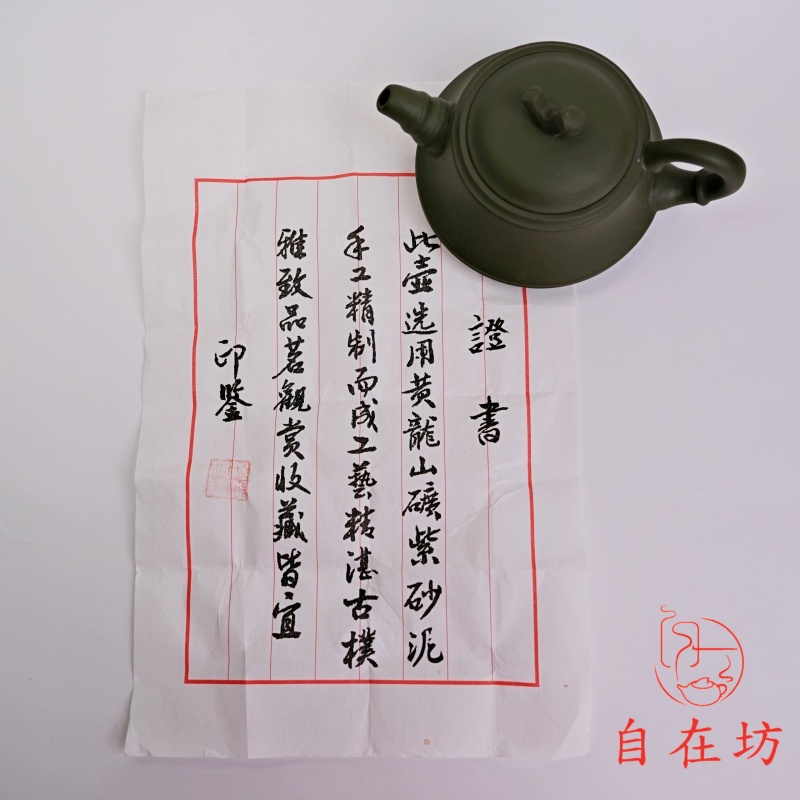 證書
此壺选用黄龍山礦紫砂泥
手工精制而成工藝精湛古樸
雅致品茗觀赏收藏皆宜
印鑒
自在坊